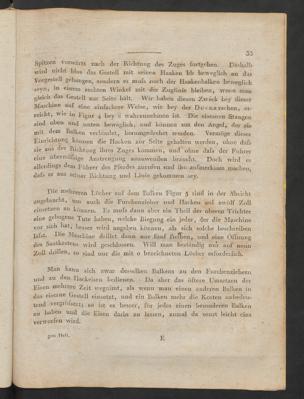 33
Spitzen vorwärts nach der Richtung des Zuges fortgehen. Deshalb
wird nicht blos das Gestell mit seinen Haaken bb beweglich an das
Vorgestell gehangen, sondern es muſs auch der Haakenbalken beweglich
seyn, in einem rechten Winkel mit die Zuglinie bleiben, wenn man
gleich das Gestell zur Seite hält. Wir haben diesen Zweck bey dieser
Maschine auf eine einfachere Weise, wie bey der Ducketschen, er-
reicht, wie in Figur 4 bey wahrzunehmen ist. Die eisernen Stangen
sind oben und unten beweglich, und können um den Angel, der sie
mit dem Balken verbindet, herumgedrehet werden. Vermöge dieser
Einrichtung können die Haaken zur Seite gehalten werden, ohne daſs
sie aus der Richtung ihres Zuges kommen, und ohne daſs der Führer
eine übermäſsige Anstrengung anzuwenden braucht. Doch wird er
allerdings dem Führer des Pferdes zurufen und ihn aufmerksam machen,
daſs er aus seiner Richtung und Linie gekommen sey.
Die mehreren Löcher auf dem Balken Figur 5 sind in der Absicht
angebracht, um auch die Furchenzieher und Hacken auf zwölf Zoll
einsetzen zu können. Es muſs dann aber ein Theil der oberen Trichter
eine gebogene Tute haben, welche Biegung ein jeder, der die Maschine
vor sich hat, besser wird angeben können, als sich solche beschreiben
läſst. Die Maschine drillet dann nur fünf Reihen, und eine Oeffnung
des Saatkastens wird geschlossen. Will man beständig nur auf neun
Zoll drillen, so sind nur die mit o bezeichneten Löcher erforderlich.
Man kann sich zwar desselben Balkens zu den Furchenziehern
und zu den Hackeisen bedienen. Da aber das öftere Umsetzen der
Eisen mehrere Zeit wegnimt, als wenn man einen anderen Balken in
das eiserne Gestell einsetzt, und ein Balken mehr die Kosten unbedeu-
tend vergröſsert; so ist es besser, für jedes einen besonderen Balken
zu haben und die Eisen darin zu lassen, zumal da sonst leicht eins
verworfen wird.
2tes Heft. E